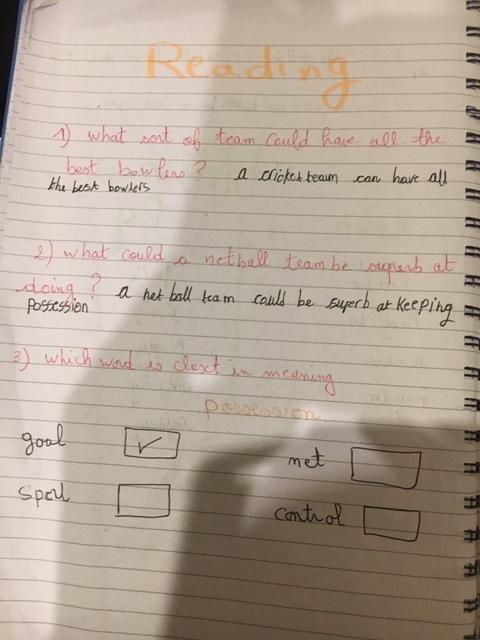 Reading
1) what sort of team could have all the
best bowlers? a cricket team can have all
the best bowlers
2) what could a netball team be superb at
doing? a net ball team could be superb at keeping
possession
3) which word is closet in meaning
possession
goal ✓
net
sport
control